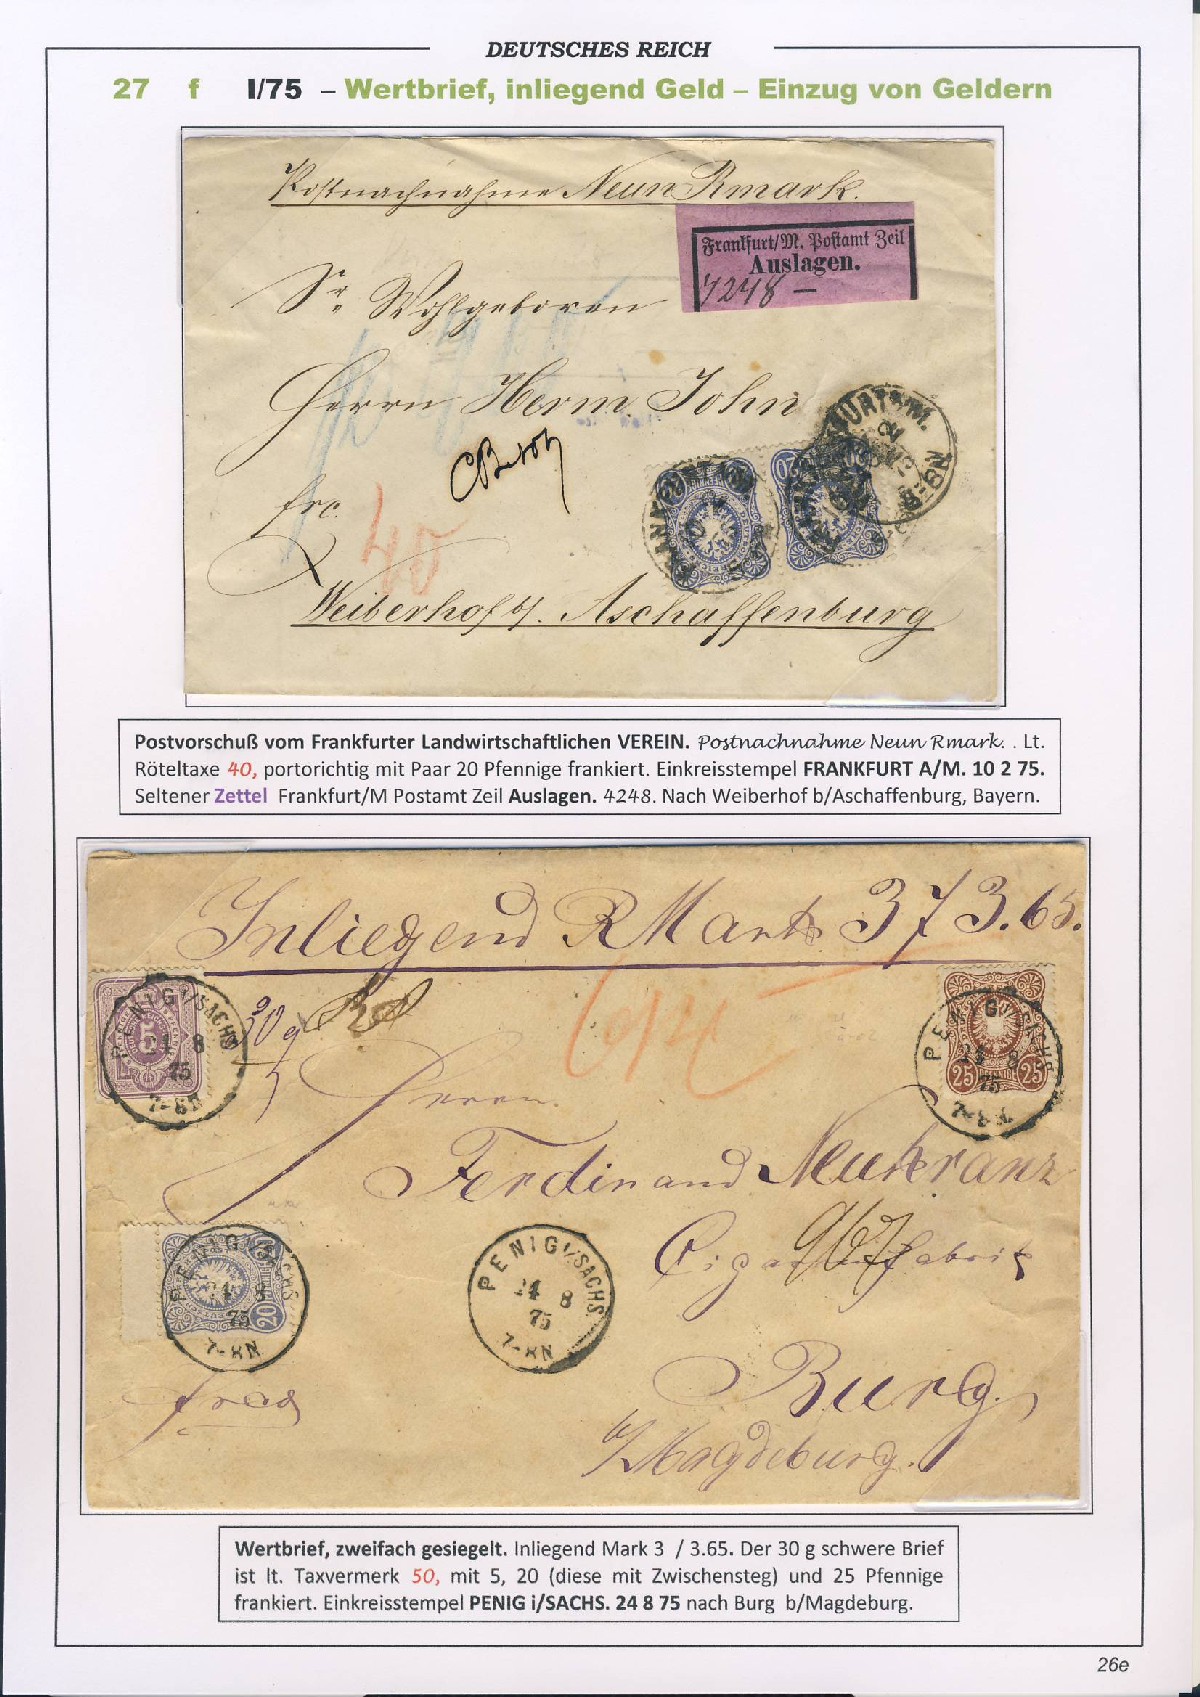 DEUTSCHES REICH
27 f I/75 – Wertbrief, inliegend Geld – Einzug von Geldern
Postnachnahme Neun Rmark.
Frankfurt/M. Postamt Zeil
Auslagen.
4248 —
Sr. Wohlgeboren
Herrn Herm John
frc.
40
Weiberhof b/. Aschaffenburg
FRANKFURT A/M.
Postvorschuß vom Frankfurter Landwirtschaftlichen VEREIN. Postnachnahme Neun Rmark. . Lt.
Röteltaxe 40, portorichtig mit Paar 20 Pfennige frankiert. Einkreisstempel FRANKFURT A/M. 10 2 75.
Seltener Zettel Frankfurt/M Postamt Zeil Auslagen. 4248. Nach Weiberhof b/Aschaffenburg, Bayern.
Inliegend R Mark 373.65.
PENIG I/SACHS
24 8
75
7-8N
5
30 g
PENIG I/SACHS
24 8
75
7-8N
25 25
Herrn
Ferdinand Neukranz
Cigarrenfabrik
PENIG I/SACHS
24 8
75
7-8N
20
PENIG I/SACHS.
24 8
75
7-8N
Burg
franco
b/Magdeburg.
Wertbrief, zweifach gesiegelt. Inliegend Mark 3 / 3.65. Der 30 g schwere Brief
ist lt. Taxvermerk 50, mit 5, 20 (diese mit Zwischensteg) und 25 Pfennige
frankiert. Einkreisstempel PENIG i/SACHS. 24 8 75 nach Burg b/Magdeburg.
26e